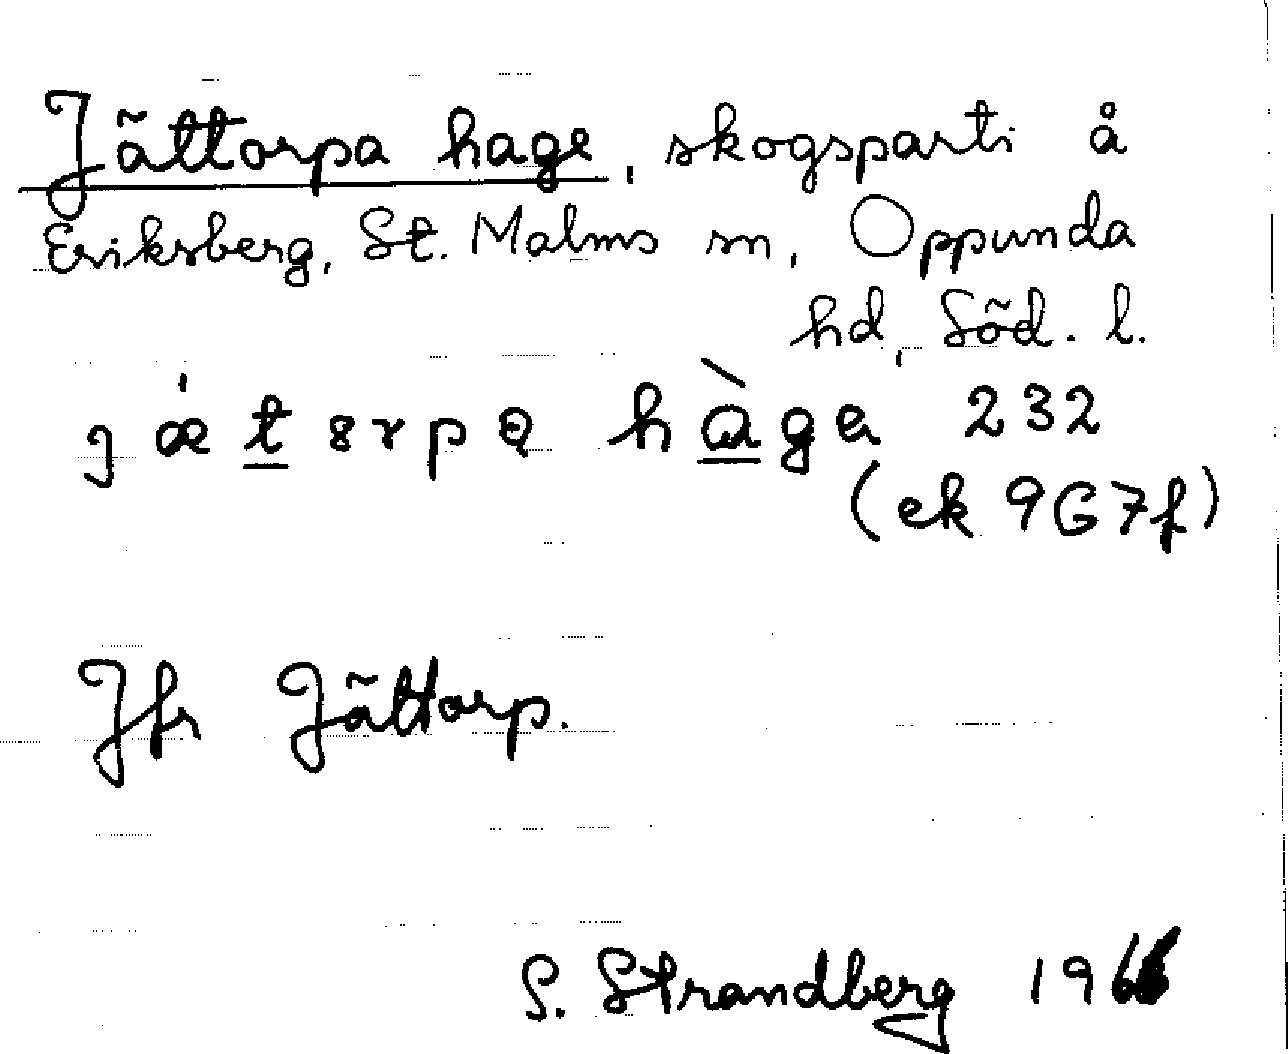 Jättorpa hage, skogsparti å
Eriksberg, St. Malms sn, Oppunda
hd, Söd. l.
hàga 232
(ek 9G7f)
Jfr Jättorp.
S. Strandberg 1966